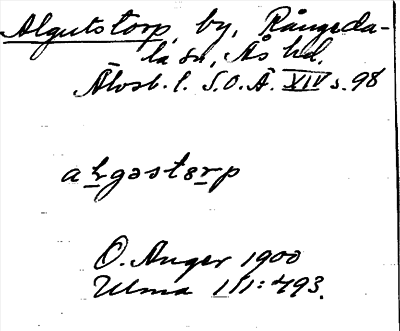 Algutstorp, by, Rångeda-
la sn, Ås hd.
Älvsb. l. S.O.Ä. XIV s. 98
O. Auger 1900
Ulma 111:493.